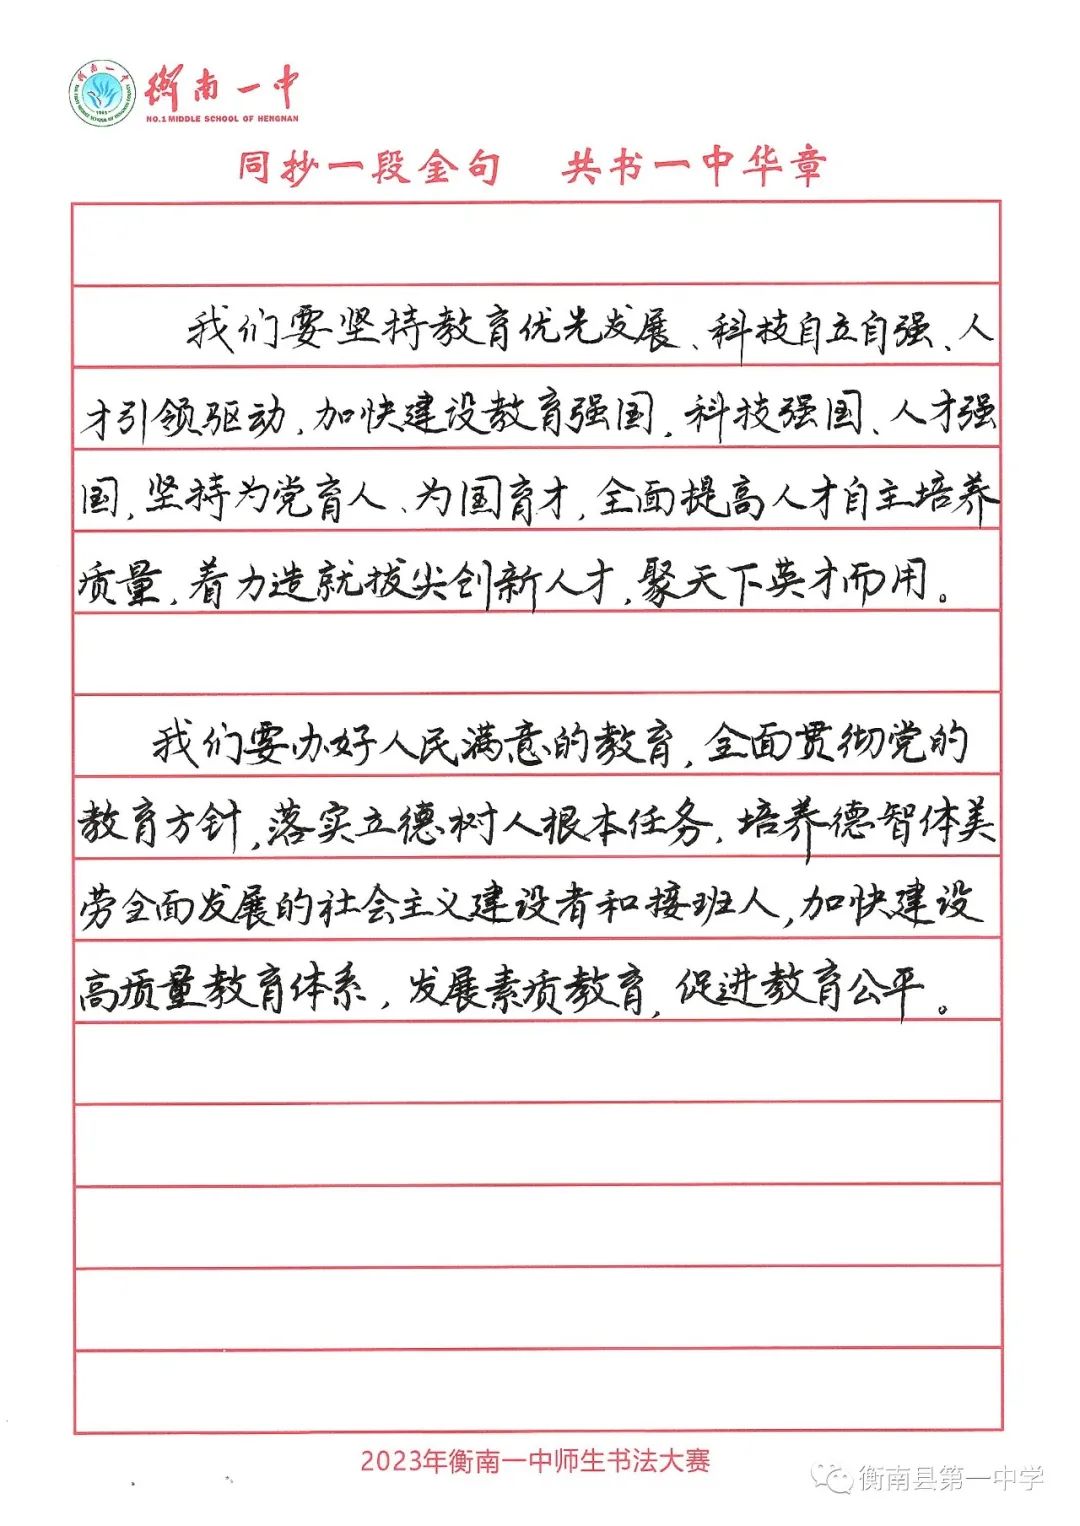 衡南一中
NO.1 MIDDLE SCHOOL OF HENGNAN
同抄一段金句 共书一中华章
我们要坚持教育优先发展、科技自立自强、人
才引领驱动,加快建设教育强国,科技强国、人才强
国,坚持为党育人、为国育才,全面提高人才自主培养
质量,着力造就拔尖创新人才,聚天下英才而用。
我们要办好人民满意的教育,全面贯彻党的
教育方针,落实立德树人根本任务,培养德智体美
劳全面发展的社会主义建设者和接班人,加快建设
高质量教育体系,发展素质教育,促进教育公平。
2023年衡南一中师生书法大赛
衡南县第一中学